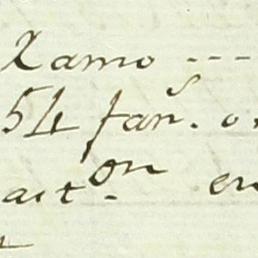 Ramo ---
54 fan.s o
act.on en